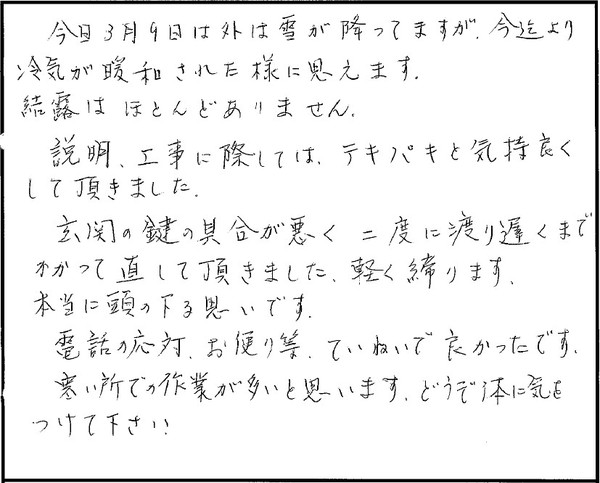 今日3月9日は外は雪が降ってますが、今迄より
冷気が暖和された様に思えます。
結露はほとんどありません。
説明、工事に際しては、テキパキと気持良く
して頂きました。
玄関の鍵の具合が悪く二度に渡り遅くまで
かかって直して頂きました、軽く締ります、
本当に頭の下る思いです。
電話の応対、お便り等、ていねいで良かったです、
寒い所での作業が多いと思います、どうぞ体に気を
つけて下さい